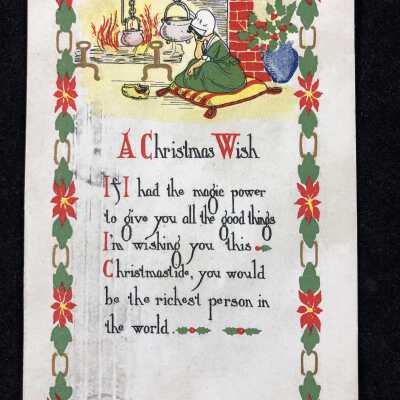 A Christmas Wish
If I had the magic power
to give you all the good things
I'm wishing you this
Christmastide, you would
be the richest person in
the world.